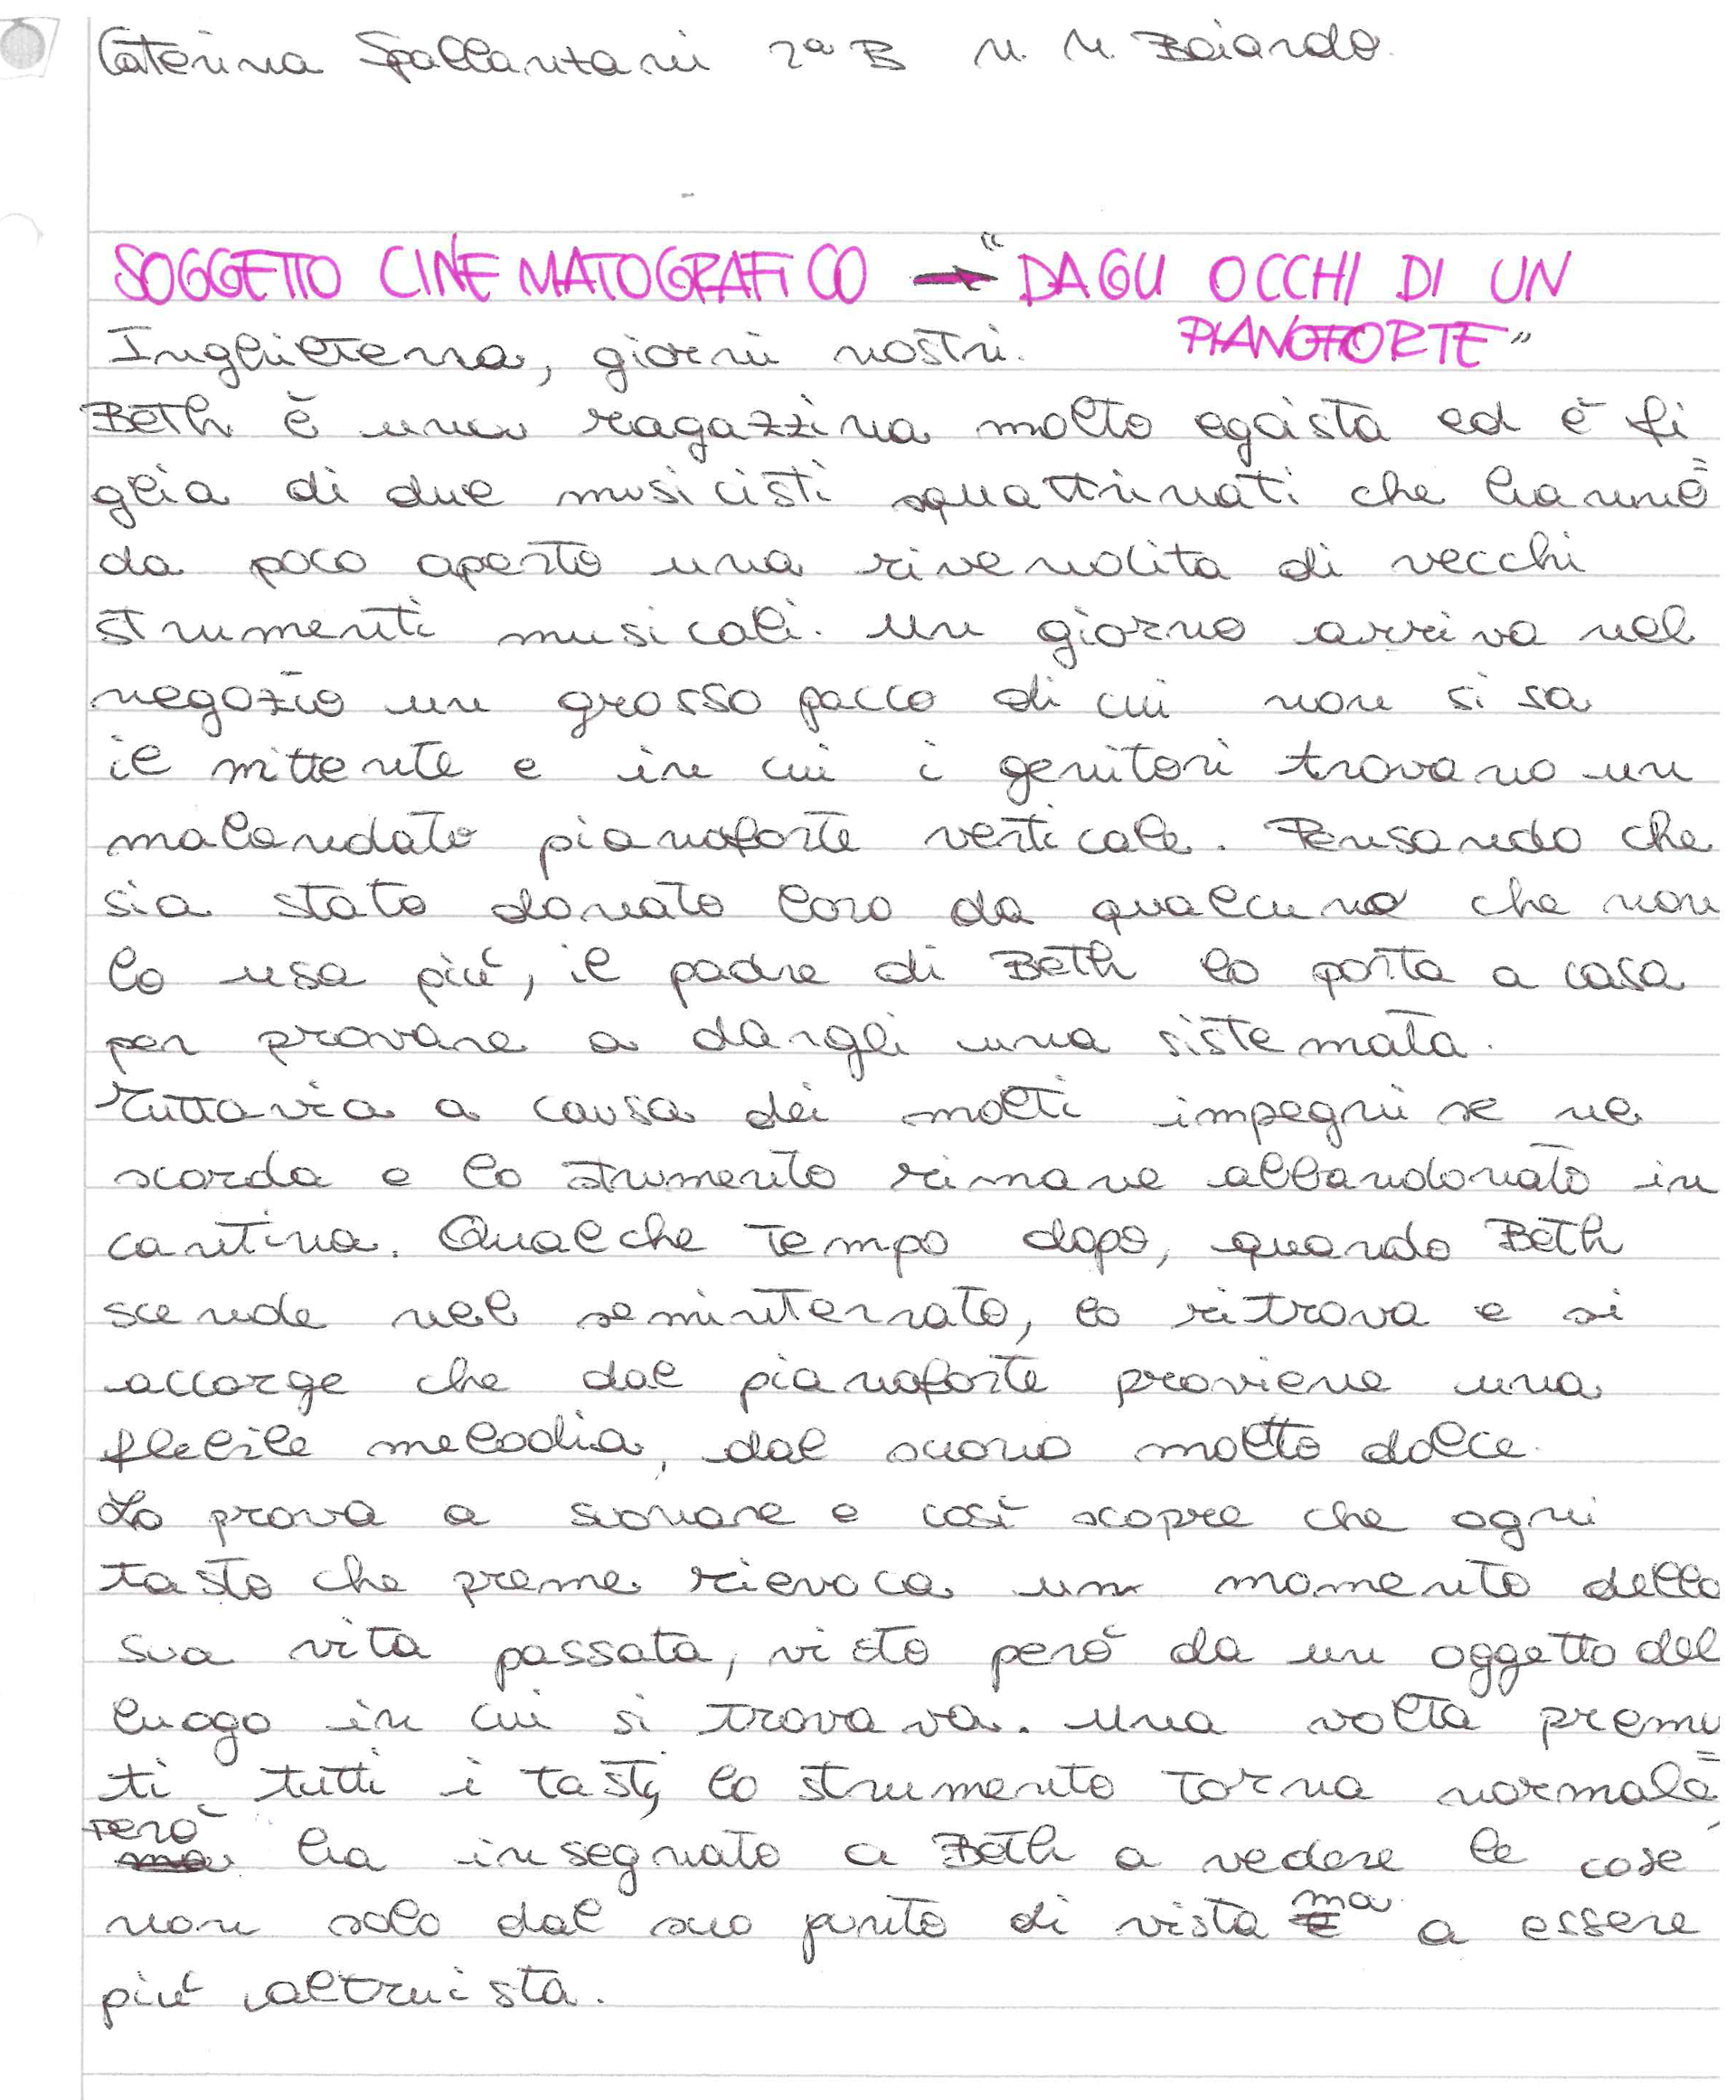 Caterina Spallanzani 2ª B M. M. Boiardo.
SOGGETTO CINEMATOGRAFICO → "DAGLI OCCHI DI UN
PIANOFORTE"
Inghilterra, giorni nostri.
Beth è una ragazzina molto egoista ed è fi
glia di due musicisti squattrinati che hanno
da poco aperto una rivendita di vecchi
strumenti musicali. Un giorno arriva nel
negozio un grosso pacco di cui non si sa
il mittente e in cui i genitori trovano un
malandato pianoforte verticale. Pensando che
sia stato donato loro da qualcuno che non
lo usa più, il padre di Beth lo porta a casa
per provare a dargli una sistemata.
Tuttavia a causa dei molti impegni se ne
scorda e lo strumento rimane abbandonato in
cantina. Qualche tempo dopo, quando Beth
scende nel seminterrato, lo ritrova e si
accorge che dal pianoforte proviene una
flebile melodia, dal suono molto dolce.
Lo prova a suonare e così scopre che ogni
tasto che preme rievoca un momento della
sua vita passata, visto però da un oggetto del
luogo in cui si trovava. Una volta premu
ti tutti i tasti, lo strumento torna normale,
però ha insegnato a Beth a vedere le cose
non solo dal suo punto di vista ma a essere
più altruista.